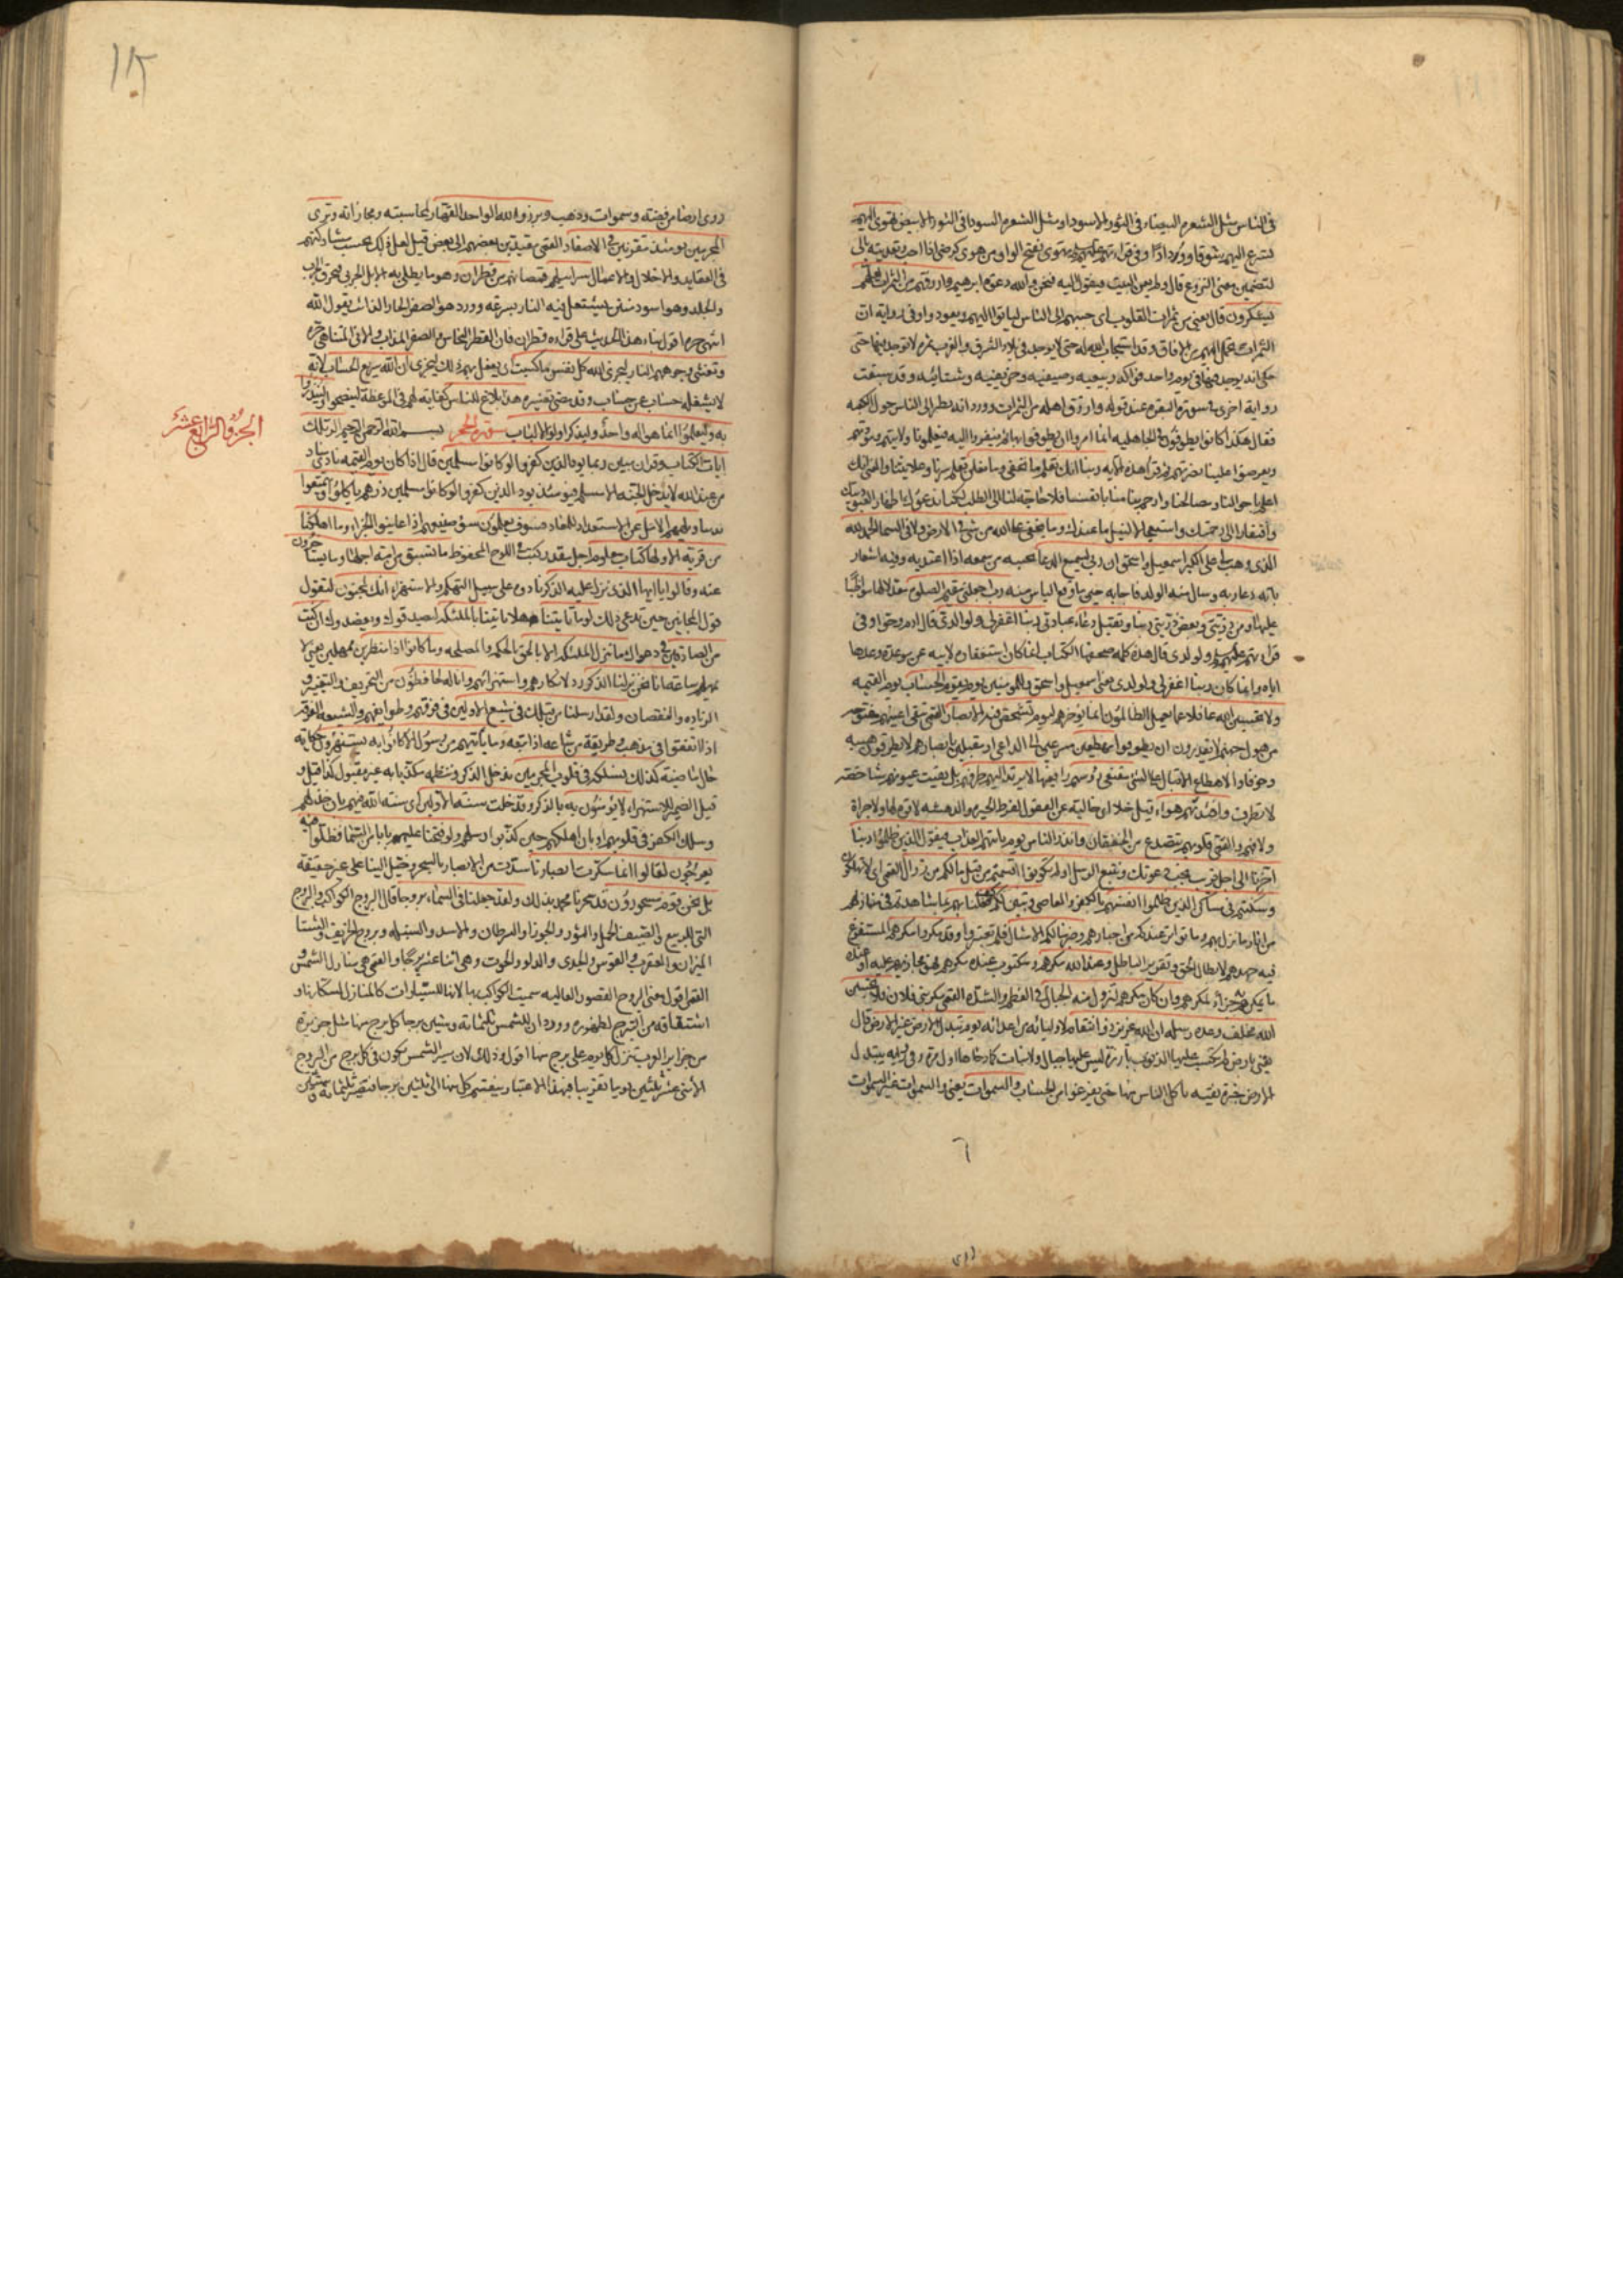 في الناس مثل الشعرة البيضاء في الثور الاسود او مثل الشعرة السوداء في الثور الابيض تهوى اليهم
تسرع اليهم شوقا وودادا وفي قراءتهم عليهم السلام تهوى بفتح الواو من هوى كرضى اذا احب وتعديته بالى
لتضمين معنى النزوع قال ولم يعن البيت فيقول اليه فنحن والله دعوة ابرهيم وارزقهم من الثمرات لعلهم
يشكرون قال يعنى من ثمرات القلوب اى حببهم الى الناس لياتوا اليهم ويعودوا وفي رواية ان
الثمرات تحمل اليهم من الافاق وقد استجاب الله له حتى لا يوجد في بلاد الشرق والغرب ثمرة لا توجد فيها حتى
حكى انه يوجد فيها في يوم واحد فواكه ربيعية وصيفية وخريفية وشتائية وقد سبقت
رواية اخرى في سورة البقرة عند قوله وارزق اهله من الثمرات وورد انه نظر الى الناس حول الكعبه
فقال هكذا كانوا يطوفون في الجاهليه انما امروا ان يطوفوا بها ثم ينفروا الينا فيعلمونا ولايتهم ومودتهم
ويعرضوا علينا نصرتهم ثم قرأ هذه الايه ربنا انك تعلم ما نخفي وما نعلن تعلم سرنا وعلانيتنا والمعنى انك
اعلم باحوالنا ومصالحنا وارحم بنا منا بانفسنا فلا حاجة لنا الى الطلب لكنا ندعوك اظهارا لعبوديتك
وافتقارا الى رحمتك واستعجالا لنيل ما عندك وما يخفى على الله من شئ في الارض ولا في السماء الحمد لله
الذى وهب لى على الكبر اسمعيل واسحق ان ربى لسميع الدعاء لمجيبه من سمعه اذا اعتد به وفيه اشعار
بانه دعا ربه وسال منه الولد فاجابه حين ما وقع الياس منه رب اجعلنى مقيم الصلوة معدلا لها مواظبا
عليها ومن ذريتى وبعض ذريتى ربنا وتقبل دعاء عبادتى ربنا اغفر لى ولوالدى قال ادم وحوا وفي
قراءتهم عليهم السلام ولولدى قال هذه كلمة صحفها الكتاب انما كان استغفاره لابيه عن موعدة وعدها
اياه وانما كان ربنا اغفر لى ولولدى يعنى اسمعيل واسحق وللمؤمنين يوم يقوم الحساب يوم القيمه
ولا تحسبن الله غافلا عما يعمل الظالمون انما يؤخرهم ليوم تشخص فيه الابصار القمى تبقى اعينهم مفتوحه
من هول جهنم لا يقدرون ان يطرفوا مهطعين مسرعين الى الداعى او مقبلين بابصارهم لا يطرفون هيبه
وخوفا والاهطاع الاقبال على الشئ مقنعى رؤسهم رافعيها لا يرتد اليهم طرفهم بل بقيت عيونهم شاخصة
لا تطرف وافئدتهم هواء قيل خلاء اى خالية عن العقول لفرط الحيرة والدهشه لا قوة لها ولا جراة
ولا فهم والقمى قلوبهم تتصدع من الخفقان وانذر الناس يوم ياتيهم العذاب فيقول الذين ظلموا ربنا
اخرنا الى اجل قريب نجب دعوتك ونتبع الرسل اولم تكونوا اقسمتم من قبل ما لكم من زوال القمى اى لا تهلكون
وسكنتم في مساكن الذين ظلموا انفسهم بالكفر والمعاصى وتبين لكم كيف فعلنا بهم بما تشاهدونه في منازلهم
من اثار ما نزل بهم وما تواتر عندكم من اخبارهم وضربنا لكم الامثال فلم تعتبروا وقد مكروا مكرهم المستفرغ
فيه جهدهم لابطال الحق وتقرير الباطل وعند الله مكرهم ومكتوب عنده مكرهم فهو مجازيهم عليه او عنده
ما يمكرهم به جزاء لمكرهم وان كان مكرهم لتزول منه الجبال في العظم والشدة القمى مكر بنى فلان فلا تحسبن
الله مخلف وعده رسله ان الله عزيز ذو انتقام لاوليائه من اعدائه يوم تبدل الارض غير الارض قال
يعنى بارض لم تكتسب عليها الذنوب بارزة ليس عليها جبال ولا نبات كما دحاها اول مرة وفي رواية تبدل
الارض خبزة نقيه ياكل الناس منها حتى يفرغوا من الحساب والسموات يعنى والسموات غير السموات
روى ارضا من فضة وسموات من ذهب وبرزوا لله الواحد القهار لمحاسبته ومجازاته وترى
المجرمين يومئذ مقرنين في الاصفاد القمى مقيدين بعضهم الى بعض قيل لعل ذلك بحسب مشاركتهم
في العقايد والاخلاق والاعمال سرابيلهم قمصانهم من قطران وهو ما يطلى به الابل الجربى فيحرق الجرب
والجلد وهو اسود منتن يشتعل فيه النار بسرعة وورد هو الصفر الحار الذائب يقول الله
انتهى حره اقول بناء هذا الحديث على قراءة قطران فان القطر النحاس والصفر المذاب والانى المتناهى حره
وتغشى وجوههم النار ليجزى الله كل نفس ما كسبت اى يفعل بهم ذلك ليجزى ان الله سريع الحساب لانه
لا يشغله حساب عن حساب وقد مضى تفسيره هذا بلاغ للناس كفاية لهم في الموعظة لينصحوا ولينذروا
به وليعلموا انما هو اله واحد وليذكر اولوا الالباب سورة الحجر بسم الله الرحمن الرحيم الر تلك
ايات الكتاب وقران مبين ربما يود الذين كفروا لو كانوا مسلمين قال اذا كان يوم القيمه نادى مناد
من عند الله لا يدخل الجنة الا مسلم فيومئذ يود الذين كفروا لو كانوا مسلمين ذرهم ياكلوا ويتمتعوا
بدنياهم ويلههم الامل عن الاستعداد للمعاد فسوف يعلمون سوء صنيعهم اذا عاينوا الجزاء وما اهلكنا
من قرية الا ولها كتاب معلوم اجل مقدر كتب في اللوح المحفوظ ما تسبق من امة اجلها وما يستاخرون
عنه وقالوا يا ايها الذى نزل عليه الذكر نادوه على سبيل التهكم والاستهزاء انك لمجنون لتقول
قول المجانين حين تدعى ذلك لوما تاتينا هلا تاتينا بالملئكة ليصدقوك ويعضدوك ان كنت
من الصادقين في دعواك ما ننزل الملئكة الا بالحق بالحكمة والمصلحه وما كانوا اذا منظرين ممهلين يعنى لا
نمهلهم ساعة انا نحن نزلنا الذكر رد لانكارهم واستهزائهم وانا له لحافظون من التحريف والتغيير و
الزيادة والنقصان ولقد ارسلنا من قبلك في شيع الاولين في فرقهم وطوايفهم والشيعة الفرقة
اذا اتفقوا في مذهب وطريقة من شاعه اذا اتبعه وما ياتيهم من رسول الا كانوا به يستهزؤن حكاية
حال ماضية كذلك نسلكه في قلوب المجرمين ندخل الذكر وننظمه مكذبا به غير مقبول كذا قيل و
قيل الضمير للاستهزاء لا يؤمنون به بالذكر وقد خلت سنة الاولين اى سنة الله فيهم بان خذلهم
وسلك الكفر في قلوبهم او بان اهلكهم حين كذبوا رسلهم ولو فتحنا عليهم بابا من السماء فظلوا فيه
يعرجون لقالوا انما سكرت ابصارنا سدت من الابصار بالسحر وخيل الينا على غير حقيقة
بل نحن قوم مسحورون قد سحرنا محمد بذلك ولقد جعلنا في السماء بروجا قال البروج الكواكب والبروج
التى للربيع والصيف الحمل والثور والجوزا والسرطان والاسد والسنبله وبروج الخريف والشتا
الميزان والعقرب والقوس والجدى والدلو والحوت وهى اثنا عشر برجا والقمى هى منازل الشمس و
القمر اقول معنى البروج القصور العاليه سميت الكواكب بها لانها للسيارات كالمنازل لسكانها و
اشتقاقه من التبرج لظهوره وورد ان للشمس ثلثمائة وستين برجا كل برج منها مثل جزيرة
من جزاير العرب تنزل كل يوم على برج منها اقول وذلك لان سير الشمس يكون في كل برج من البروج
الاثنى عشر ثلثين يوما تقريبا فبهذا الاعتبار ينقسم كل منها الى ثلثين برجا فتصير ثلثمائة وستين
الجزو الرابع عشر